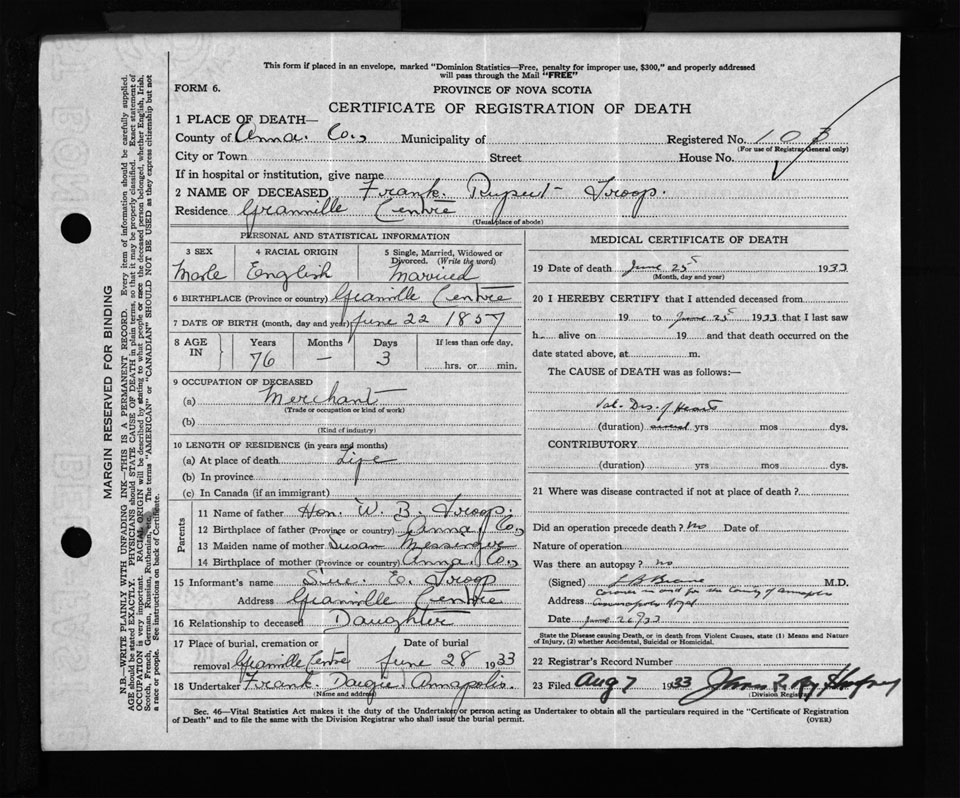 This form if placed in an envelope, marked "Dominion Statistics—Free, penalty for improper use, $300," and properly addressed
will pass through the Mail "FREE"
FORM 6.
PROVINCE OF NOVA SCOTIA
CERTIFICATE OF REGISTRATION OF DEATH
1 PLACE OF DEATH—
County of Anna. Co., Municipality of Registered No. 103
(For use of Registrar General only)
City or Town Street House No.
If in hospital or institution, give name
2 NAME OF DECEASED Frank Rupert Troop.
Residence Granville Centre
(Usual place of abode)
PERSONAL AND STATISTICAL INFORMATION
3 SEX 4 RACIAL ORIGIN 5 Single, Married, Widowed or
Divorced. (Write the word)
Male English Married
6 BIRTHPLACE (Province or country) Granville Centre
7 DATE OF BIRTH (month, day and year) June 22 1857
8 AGE IN Years Months Days If less than one day,
76 — 3 hrs. or min.
9 OCCUPATION OF DECEASED
(a) Merchant
(Trade or occupation or kind of work)
(b)
(Kind of industry)
10 LENGTH OF RESIDENCE (in years and months)
(a) At place of death Life
(b) In province
(c) In Canada (if an immigrant)
Parents
11 Name of father Hon. W. B. Troop.
12 Birthplace of father (Province or country) Anna Co.,
13 Maiden name of mother Susan Messinger
14 Birthplace of mother (Province or country) Anna. Co.,
15 Informant's name E. Troop
Address Granville Centre
16 Relationship to deceased Daughter
17 Place of burial, cremation or Date of burial
removal Granville Centre June 28 1933
18 Undertaker Frank Annapolis.
(Name and address)
MEDICAL CERTIFICATE OF DEATH
19 Date of death June 25 1933
(Month, day and year)
20 I HEREBY CERTIFY that I attended deceased from
19 to June 25 1933 that I last saw
h alive on 19 and that death occurred on
date stated above, at m.
The CAUSE of DEATH was as follows:—
Val. Dis. of Heart
(duration) several yrs mos dys.
CONTRIBUTORY
(duration) yrs mos dys.
21 Where was disease contracted if not at place of death?
Did an operation precede death? no Date of
Nature of operation
Was there an autopsy? no
(Signed) M.D.
Coroner in and for the County of Annapolis
Address Annapolis Royal
Date June 26/33
State the Disease causing Death, or in death from Violent Causes, state (1) Means and Nature
of Injury, (2) whether Accidental, Suicidal or Homicidal.
22 Registrar's Record Number
23 Filed Aug 7 1933
(Division Registrar)
Sec. 46—Vital Statistics Act makes it the duty of the Undertaker or person acting as Undertaker to obtain all the particulars required in the "Certificate of Registration
of Death" and to file the same with the Division Registrar who shall issue the burial permit. (OVER)
MARGIN RESERVED FOR BINDING
N.B.—WRITE PLAINLY WITH UNFADING INK—THIS IS A PERMANENT RECORD. Every item of information should be carefully supplied.
AGE should be stated EXACTLY. PHYSICIANS should STATE CAUSE OF DEATH in plain terms, so that it may be properly classified. Exact statement of
OCCUPATION is very important. RACIAL ORIGIN will be described by stating to what people or race the deceased person belonged, whether English, Irish,
Scotch, French, German, Russian, Ruthenian, etc. The terms "AMERICAN" or "CANADIAN" SHOULD NOT BE USED as they express citizenship but not
a race or people. See instructions on back of Certificate.